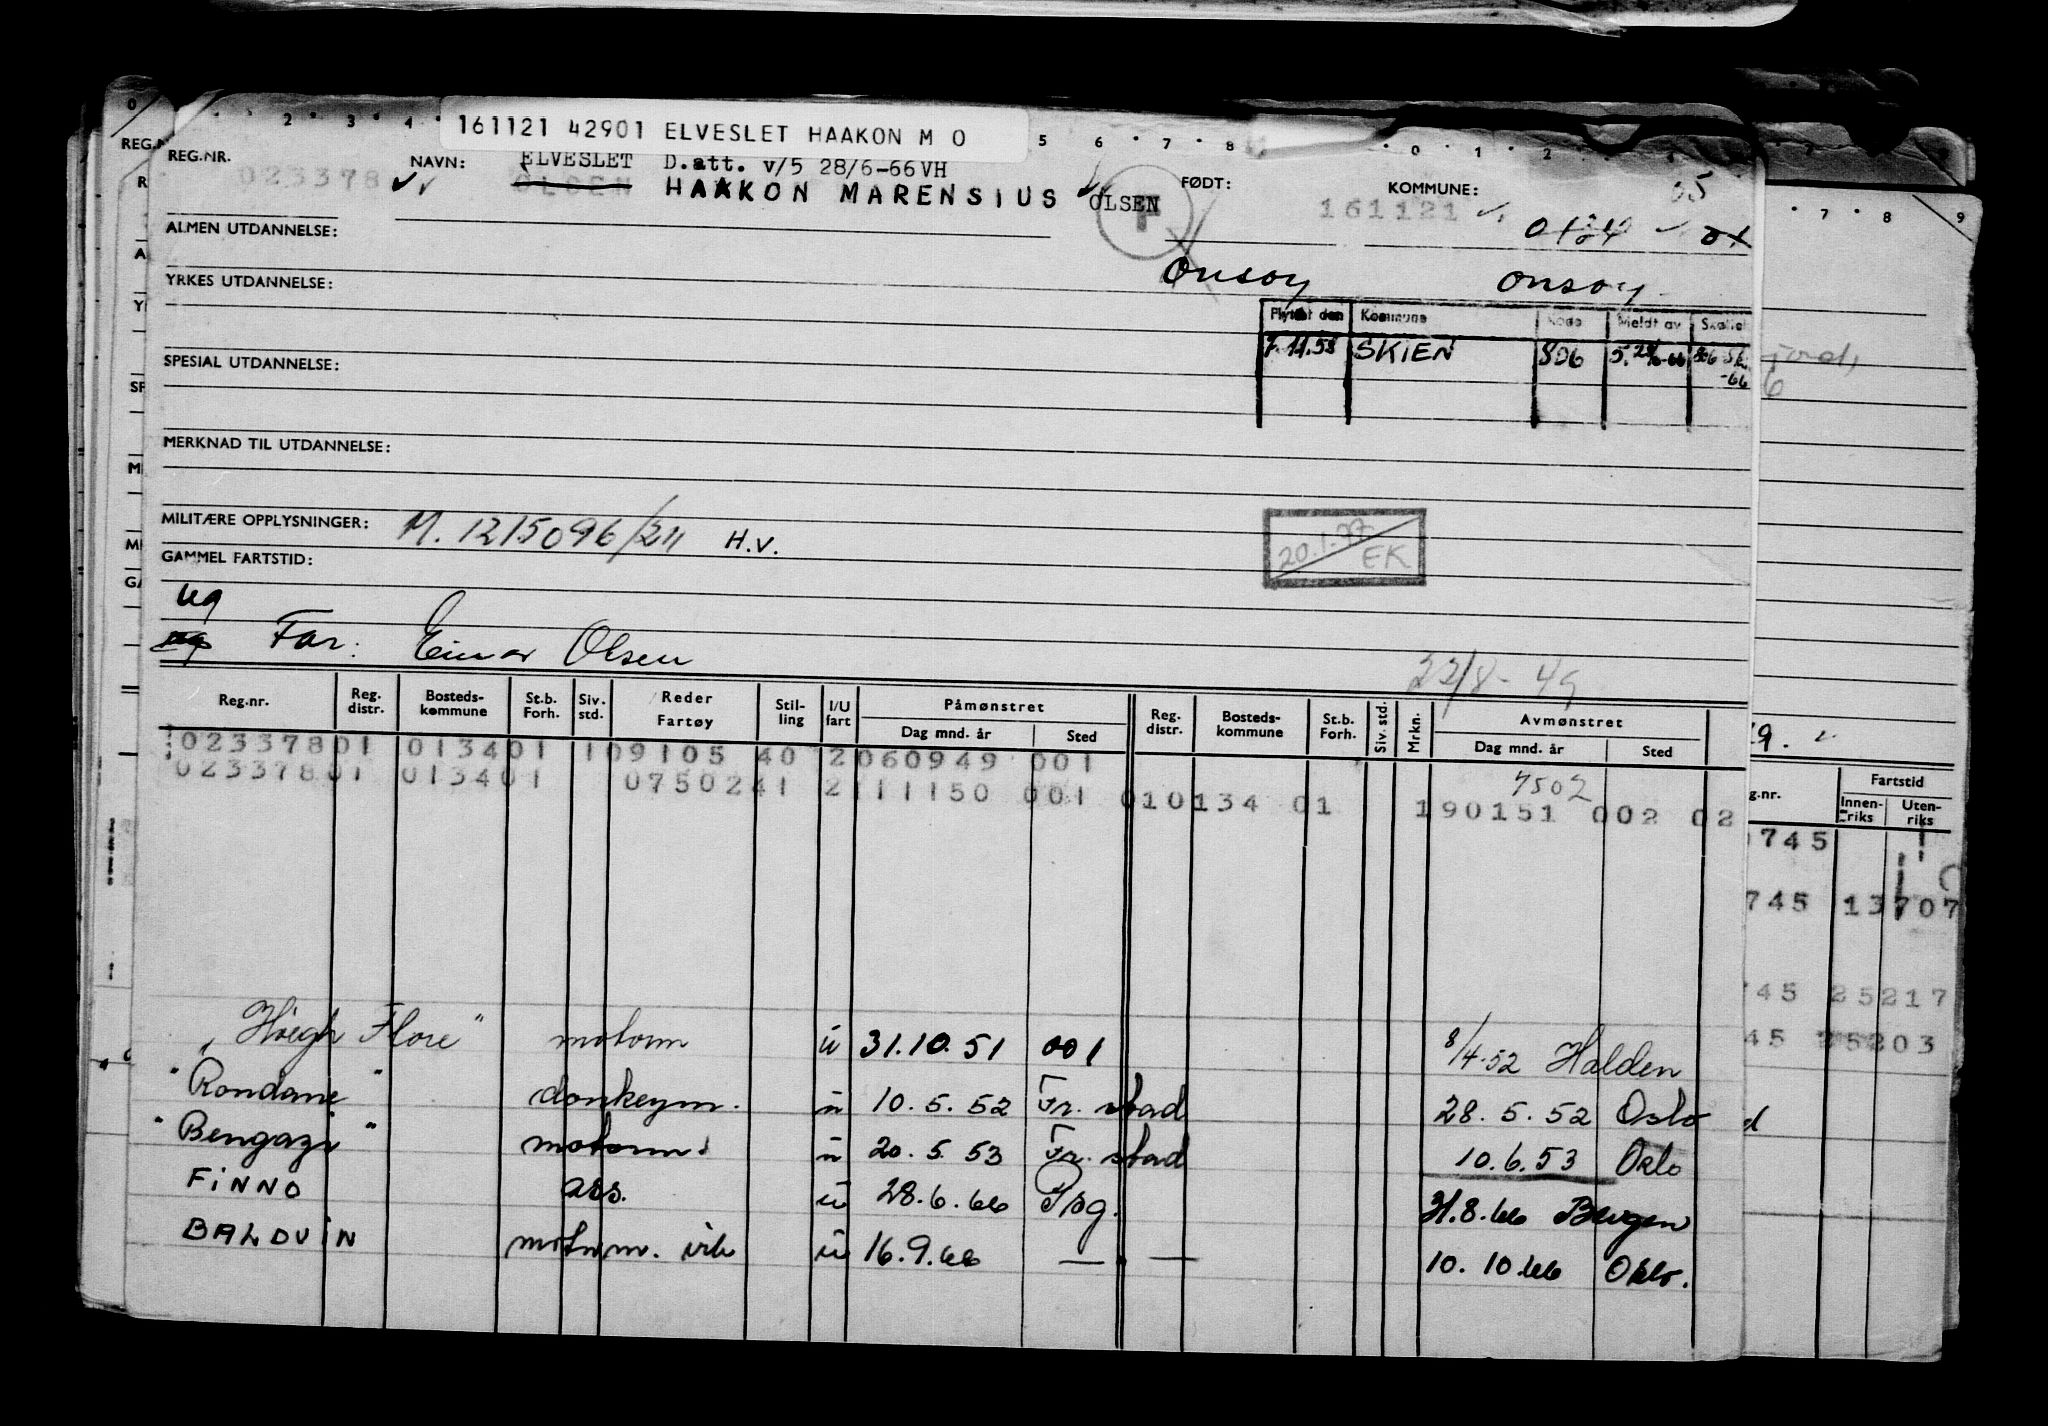 161121 42901 ELVESLET HAAKON M O
REG.NR. 023378 NAVN: ELVESLET D.att. v/5 28/6-66 VH
OLSEN HAAKON MARENSIUS OLSEN FØDT: 161121 KOMMUNE: 05
ALMEN UTDANNELSE:
Onsøy Onsøy
YRKES UTDANNELSE:
Flyttet den Kommune Kode Meldt av
7.11.53 SKIEN 806
SPESIAL UTDANNELSE:
MERKNAD TIL UTDANNELSE:
MILITÆRE OPPLYSNINGER: M. 1215096/211 H.V.
20.1.77 EK
GAMMEL FARTSTID:
ug
Far: Einar Olsen
22/8-49
Reg.nr. Reg. distr. Bosteds-kommune St.b. Forh. Siv. std. Reder Fartøy Stil-ling I/U fart Påmønstret Dag mnd. år Sted Reg. distr. Bosteds-kommune St.b. Forh. Siv. std. Mrkn. Avmønstret Dag mnd. år Sted
02337801 013401 109105 40 2 060949 001
7502
02337801 013401 0750241 2 111150 001 010134 01 190151 002 02
"Høegh Flore" motorm u 31.10.51 001 8/4-52 Halden
"Rondane" donkeym. u 10.5.52 Fr. stad 28.5.52 Oslo
"Bengazi" motorm. u 20.5.53 Fr. stad 10.6.53 Oslo
FINNO ass. u 28.6.66 Psg. 8.66 Bergen
BALDUIN motorm. vik u 16.9.66 — — 10.10.66 Oslo.
Fartstid
Innen-riks Uten-riks
745
745 13707
45 25217
45 25203